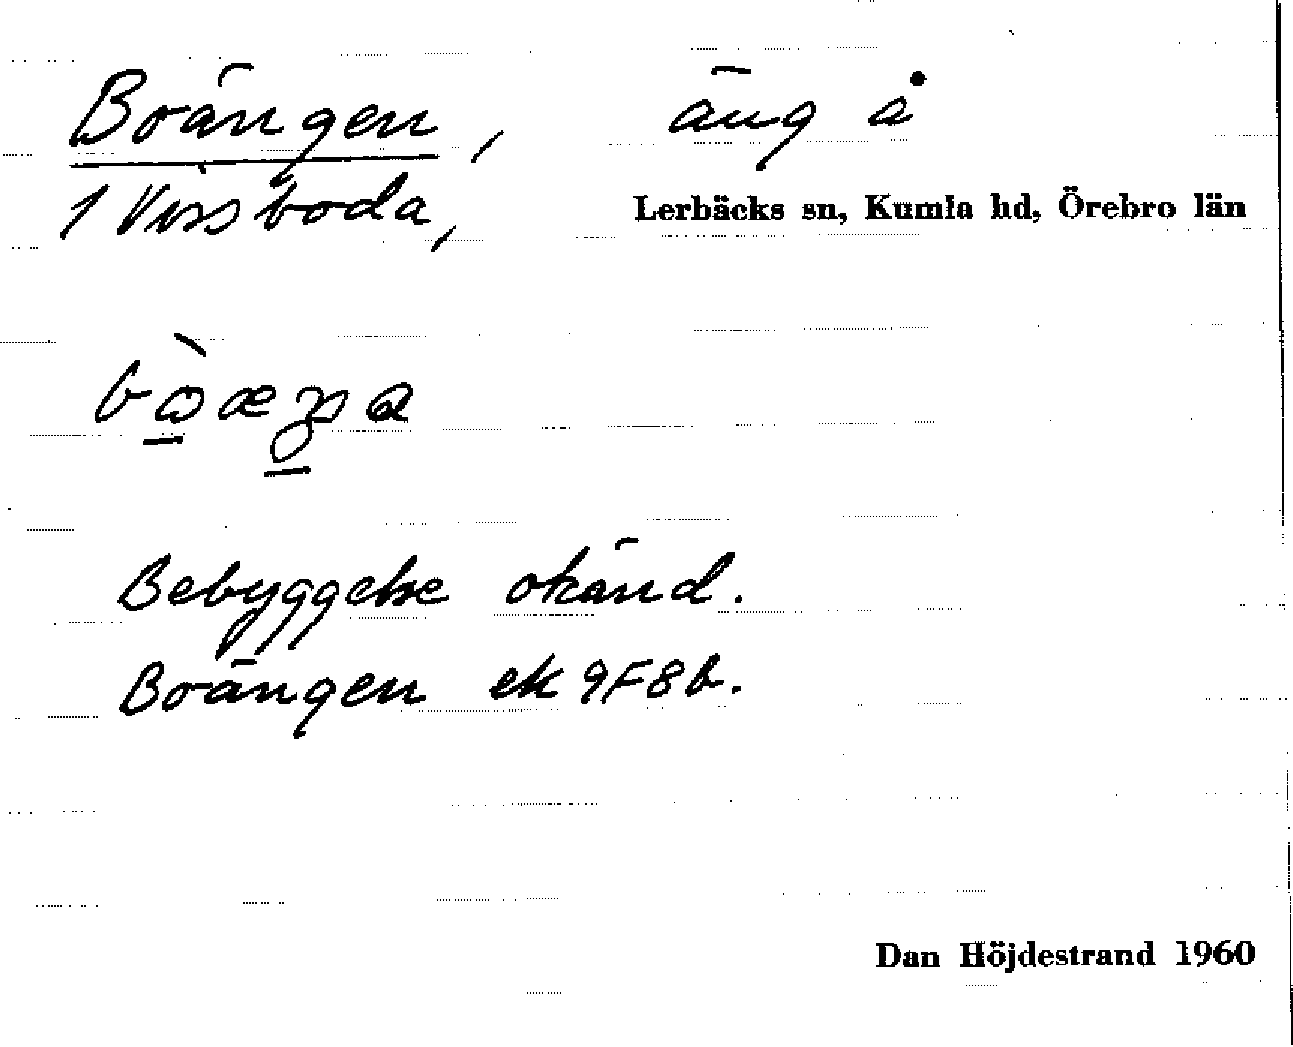 Boängen, äng å
1 Vissboda, Lerbäcks sn, Kumla hd, Örebro län
Bebyggelse okänd.
Boängen ek 9F8b.
Dan Höjdestrand 1960